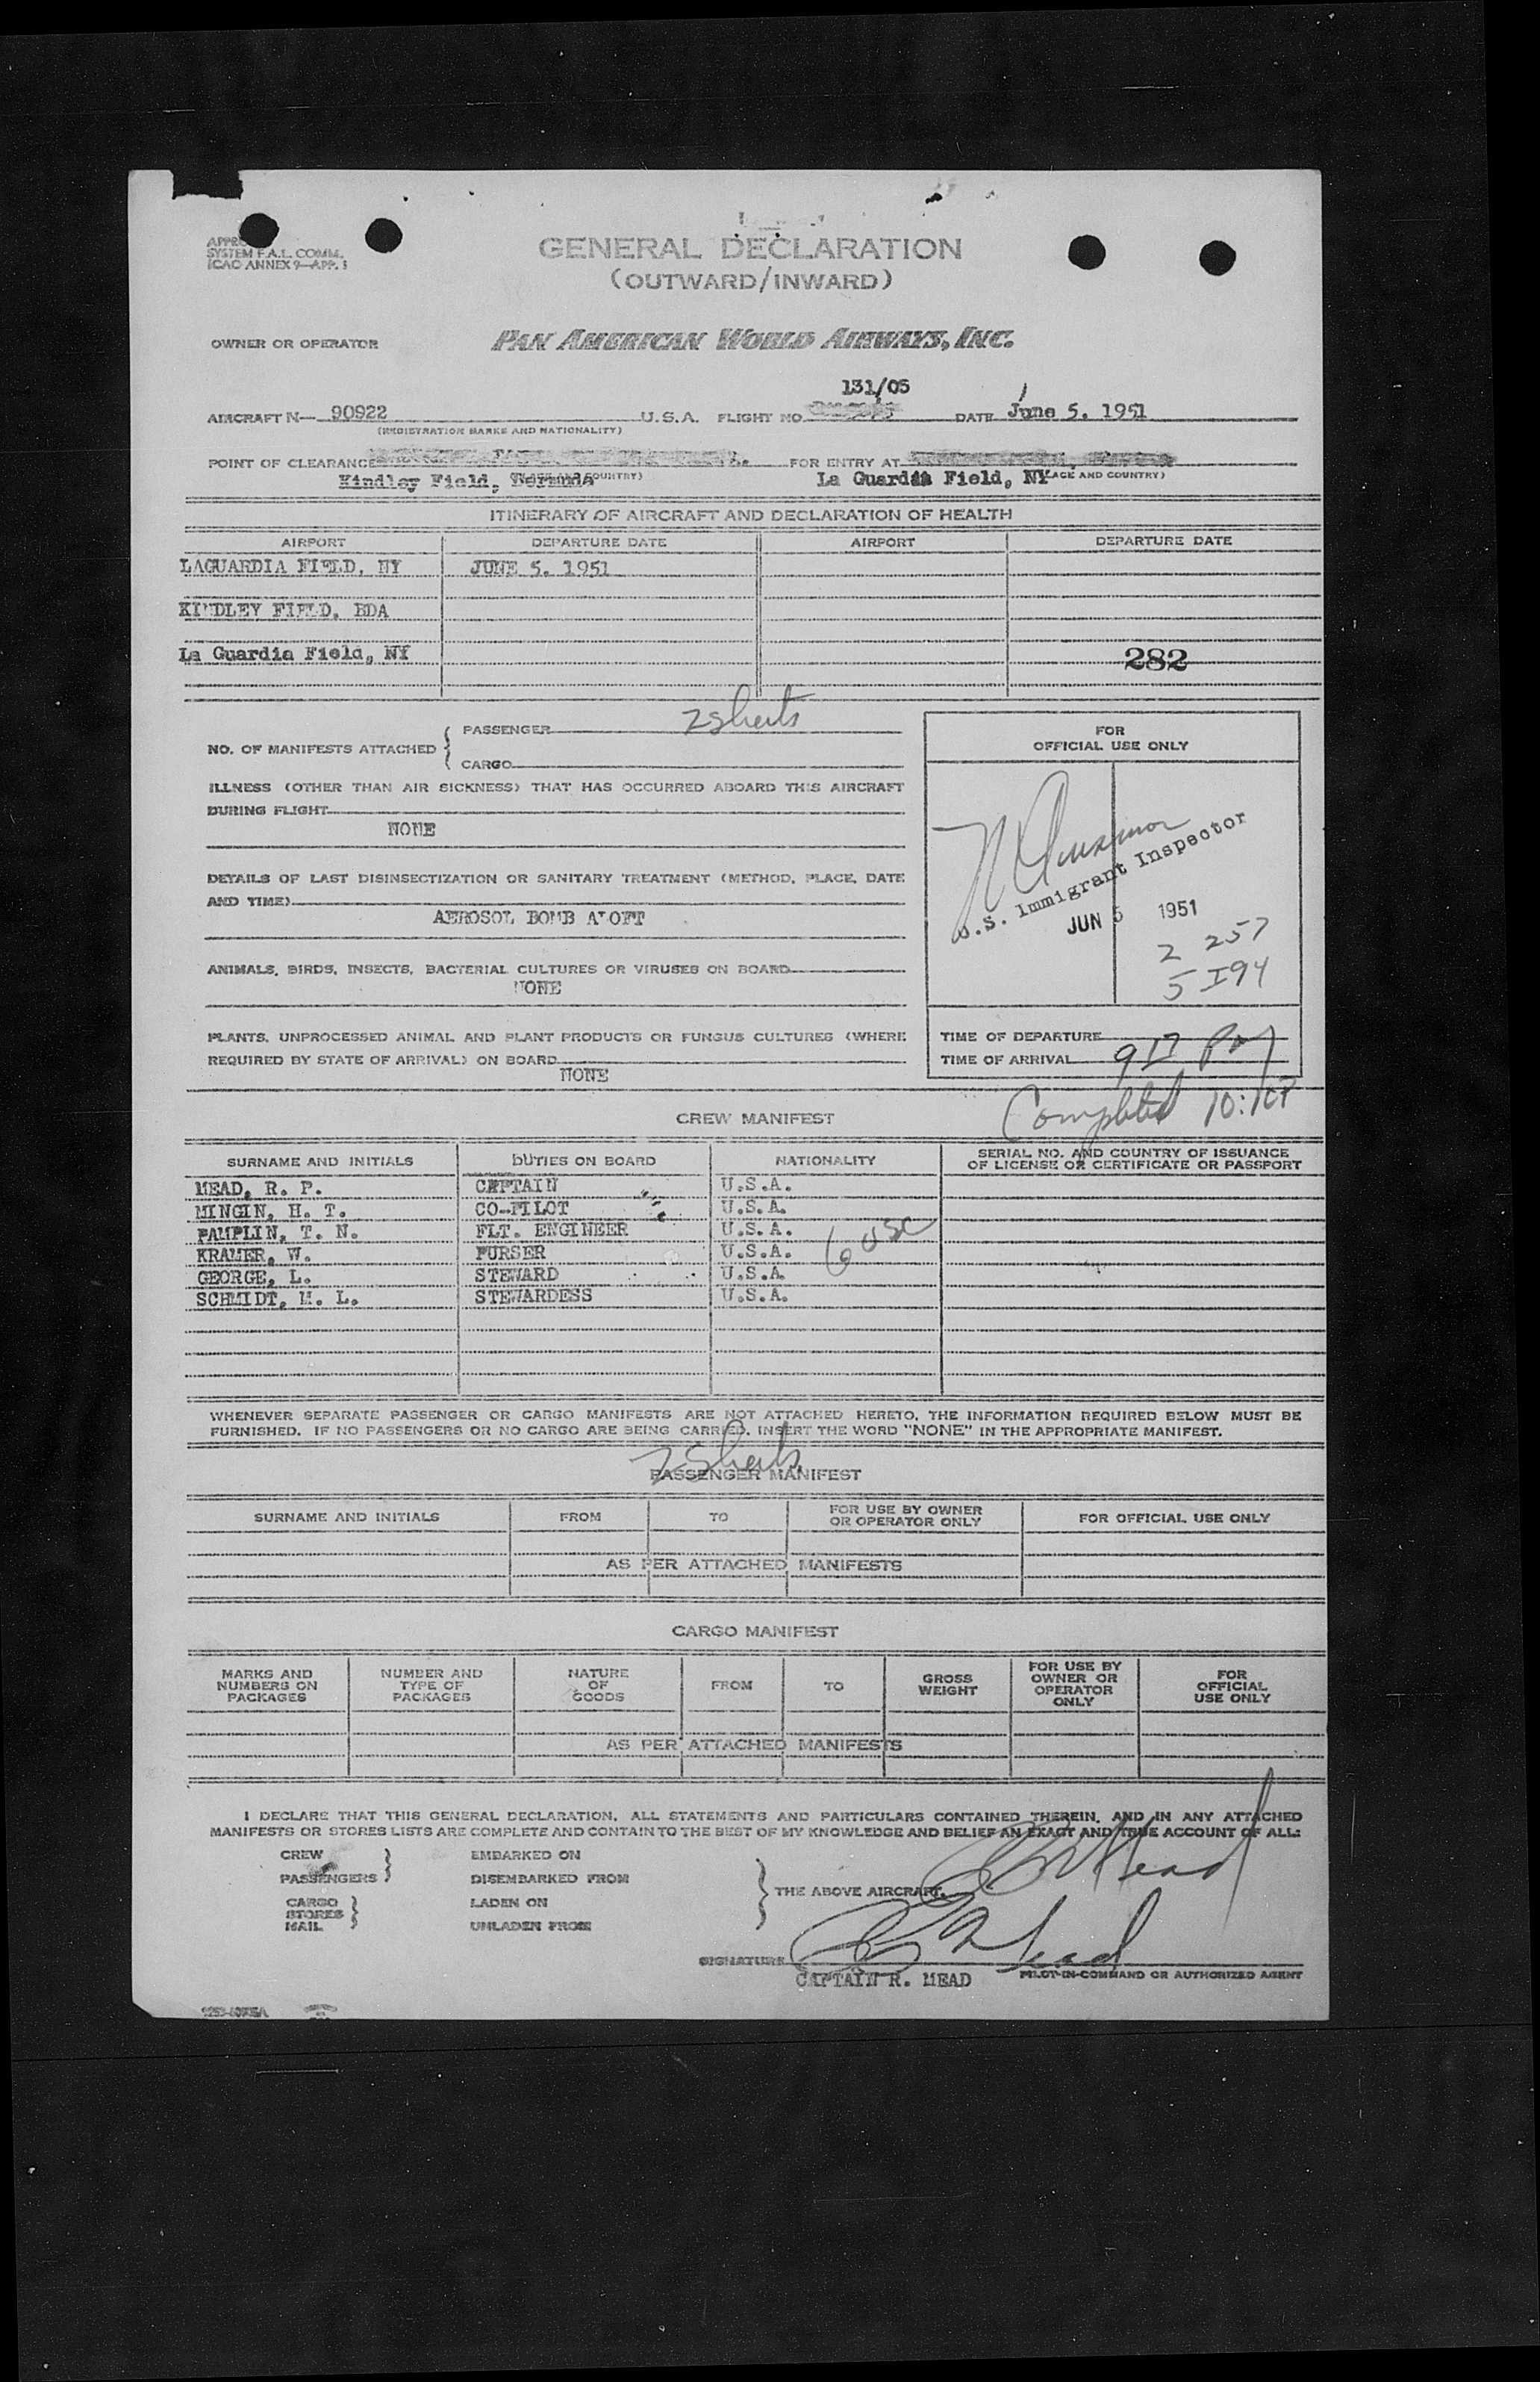 SYSTEM F.A.L. COMM.
ICAO ANNEX 9—APP. 1
GENERAL DECLARATION
(OUTWARD/INWARD)
OWNER OR OPERATOR PAN AMERICAN WORLD AIRWAYS, INC.
131/05
AIRCRAFT N— 90922 U.S.A. FLIGHT NO DATE June 5. 1951
(REGISTRATION MARKS AND NATIONALITY)
POINT OF CLEARANCE FOR ENTRY AT
Kindley Field, Bermuda COUNTRY) La Guardia Field, NY LACE AND COUNTRY)
ITINERARY OF AIRCRAFT AND DECLARATION OF HEALTH
AIRPORT DEPARTURE DATE AIRPORT DEPARTURE DATE
LAGUARDIA FIELD, NY JUNE 5. 1951
KINDLEY FIELD, BDA
La Guardia Field, NY 282
NO. OF MANIFESTS ATTACHED { PASSENGER 2 sheets
CARGO
FOR
OFFICIAL USE ONLY
ILLNESS (OTHER THAN AIR SICKNESS) THAT HAS OCCURRED ABOARD THIS AIRCRAFT
DURING FLIGHT
NONE
DETAILS OF LAST DISINSECTIZATION OR SANITARY TREATMENT (METHOD, PLACE, DATE
AND TIME)
AEROSOL BOMB ALOFT
ANIMALS, BIRDS, INSECTS, BACTERIAL CULTURES OR VIRUSES ON BOARD
NONE
PLANTS, UNPROCESSED ANIMAL AND PLANT PRODUCTS OR FUNGUS CULTURES (WHERE
REQUIRED BY STATE OF ARRIVAL) ON BOARD
NONE
U.S. Immigrant Inspector
JUN 5 1951
2 257
5 I94
TIME OF DEPARTURE
TIME OF ARRIVAL 9 17 PM
Completed 10:10P
CREW MANIFEST
SURNAME AND INITIALS DUTIES ON BOARD NATIONALITY SERIAL NO. AND COUNTRY OF ISSUANCE
OF LICENSE OR CERTIFICATE OR PASSPORT
MEAD, R. P. CAPTAIN U.S.A.
MINGIN, H. T. CO-PILOT U.S.A.
PAMPLIN, T. N. FLT. ENGINEER U.S.A.
KRAMER, W. PURSER U.S.A. 6 USC
GEORGE, L. STEWARD U.S.A.
SCHMIDT, M. L. STEWARDESS U.S.A.
WHENEVER SEPARATE PASSENGER OR CARGO MANIFESTS ARE NOT ATTACHED HERETO, THE INFORMATION REQUIRED BELOW MUST BE
FURNISHED. IF NO PASSENGERS OR NO CARGO ARE BEING CARRIED, INSERT THE WORD "NONE" IN THE APPROPRIATE MANIFEST.
2 Sheets
PASSENGER MANIFEST
SURNAME AND INITIALS FROM TO FOR USE BY OWNER
OR OPERATOR ONLY FOR OFFICIAL USE ONLY
AS PER ATTACHED MANIFESTS
CARGO MANIFEST
MARKS AND
NUMBERS ON
PACKAGES
NUMBER AND
TYPE OF
PACKAGES
NATURE
OF
GOODS
FROM
TO
GROSS
WEIGHT
FOR USE BY
OWNER OR
OPERATOR
ONLY
FOR
OFFICIAL
USE ONLY
AS PER ATTACHED MANIFESTS
I DECLARE THAT THIS GENERAL DECLARATION, ALL STATEMENTS AND PARTICULARS CONTAINED THEREIN, AND IN ANY ATTACHED
MANIFESTS OR STORES LISTS ARE COMPLETE AND CONTAIN TO THE BEST OF MY KNOWLEDGE AND BELIEF AN EXACT AND TRUE ACCOUNT OF ALL:
CREW EMBARKED ON
PASSENGERS DISEMBARKED FROM
THE ABOVE AIRCRAFT.
CARGO LADEN ON
STORES
MAIL UNLADEN FROM
R P Mead
SIGNATURE R P Mead
CAPTAIN R. MEAD PILOT-IN-COMMAND OR AUTHORIZED AGENT